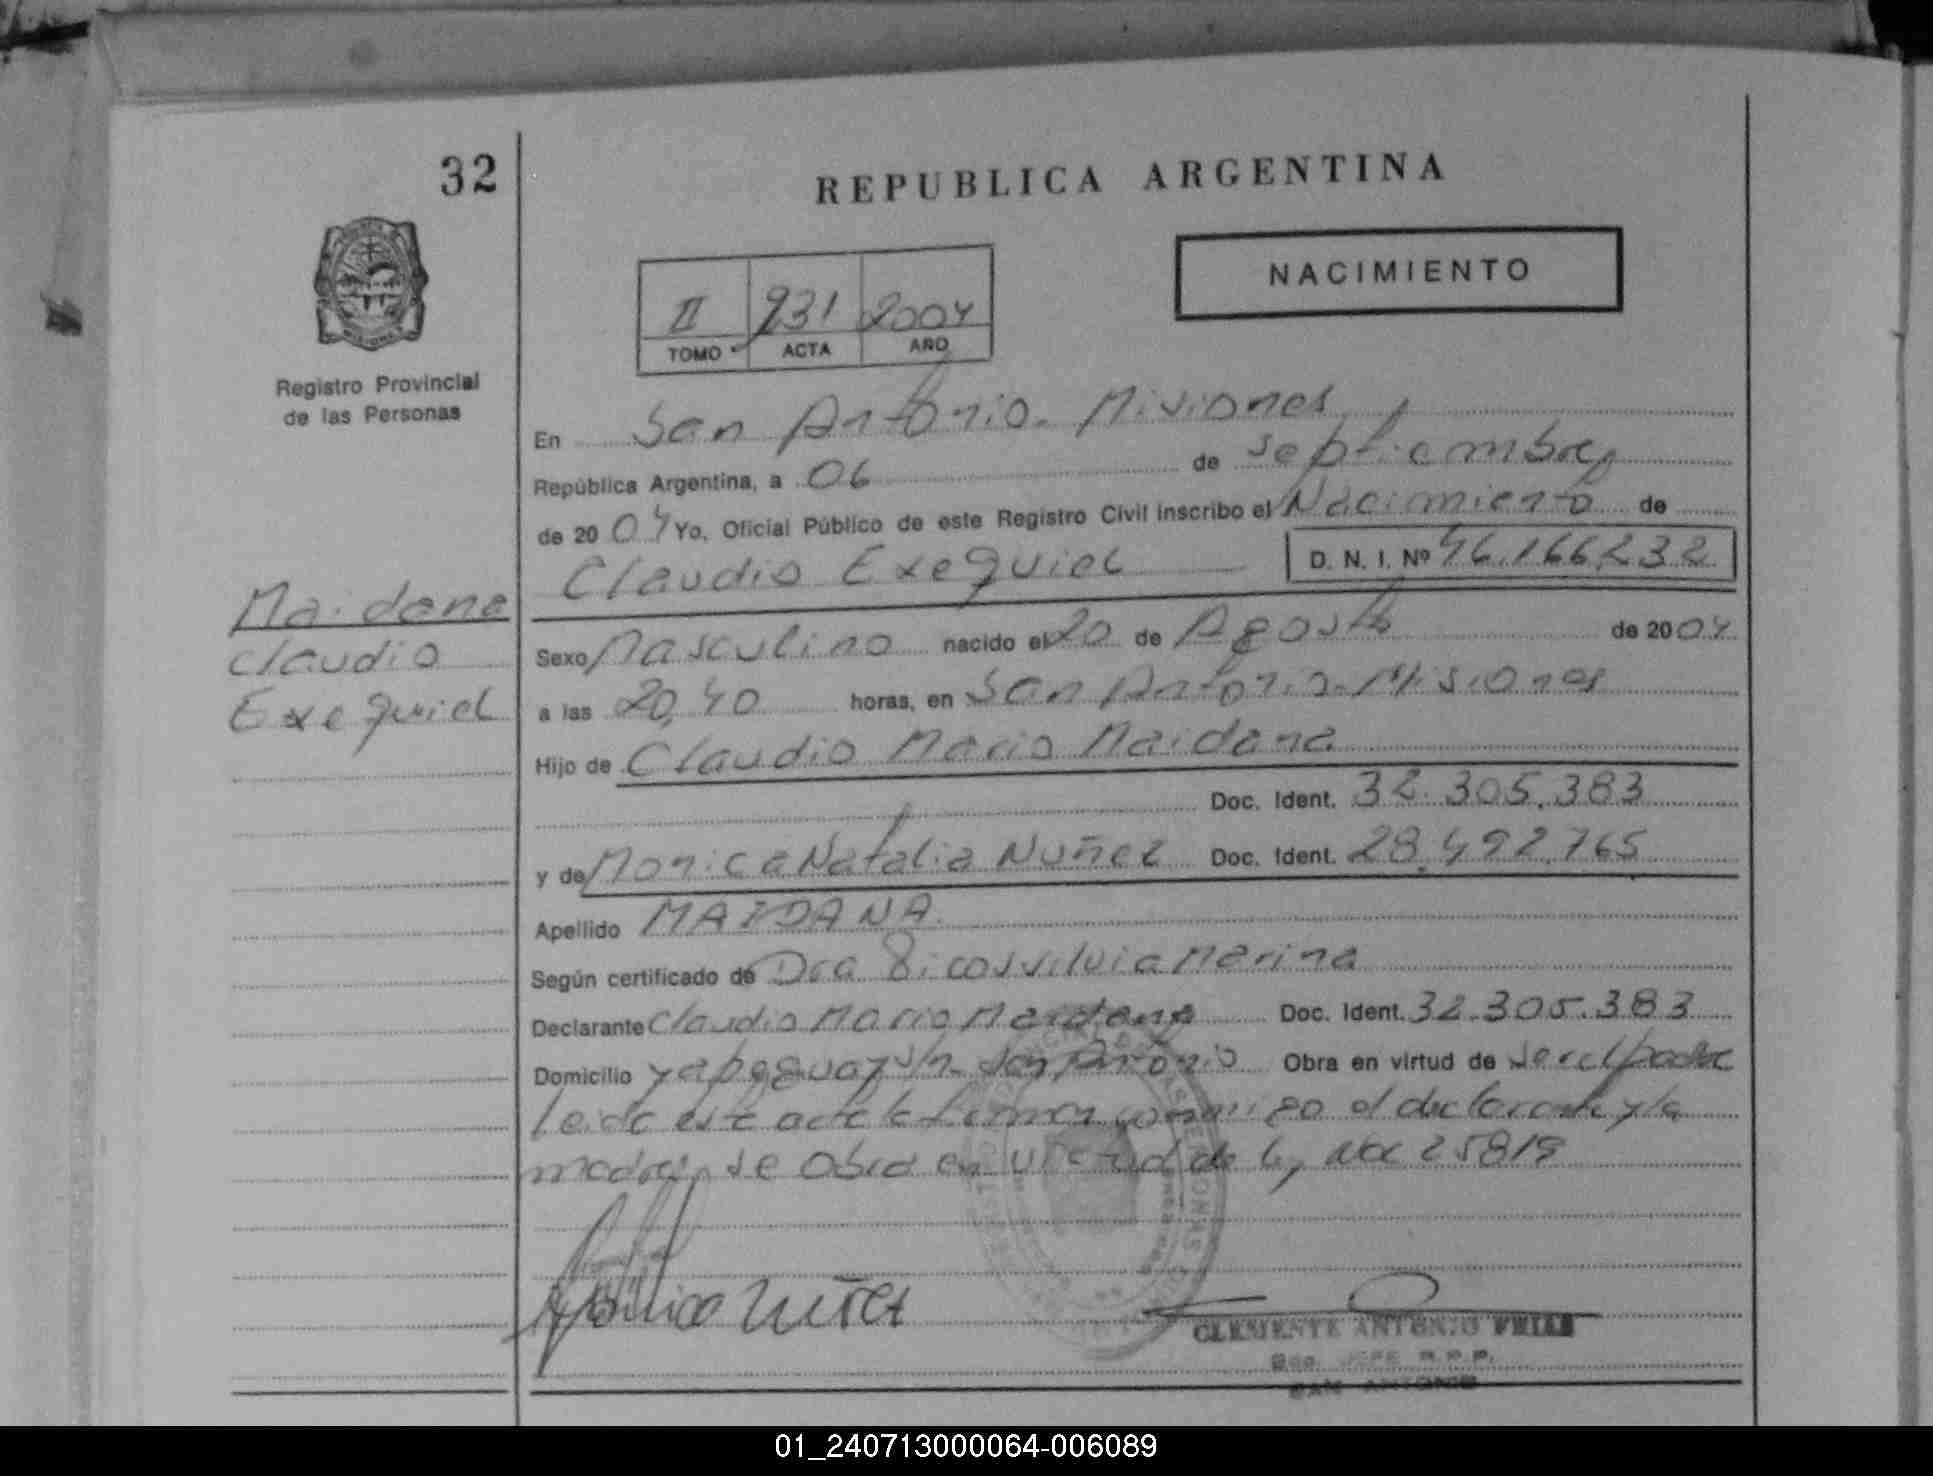 32
REPUBLICA ARGENTINA
NACIMIENTO
II 931 2004
TOMO ACTA AÑO
Registro Provincial
de las Personas
En San Antonio. Misiones
República Argentina, a 06 de septiembre
de 20 04 Yo, Oficial Público de este Registro Civil inscribo el Nacimiento de
Claudio Exequiel D. N. I. Nº 46.166.232
Maidana
Claudio
Exequiel
Sexo Masculino nacido el 20 de Agosto de 2004
a las 20,40 horas, en San Antonio-Misiones
Hijo de Claudio Mario Maidana
Doc. Ident. 32.305.383
y de Monica Natalia Nuñez Doc. Ident. 28.492.765
Apellido MAIDANA
Según certificado de Dra silvia Marina
Declarante Claudio Mario Maidana Doc. Ident. 32.305.383
Domicilio s/n. San Antonio Obra en virtud de ser el padre
leida este acta la firman conmigo el declarante y la
madre, se obra en virtud de ley Nº 25819
Monica Nuñez
CLEMENTE ANTONIO
JEFE R.P.P.
SAN ANTONIO
01_240713000064-006089